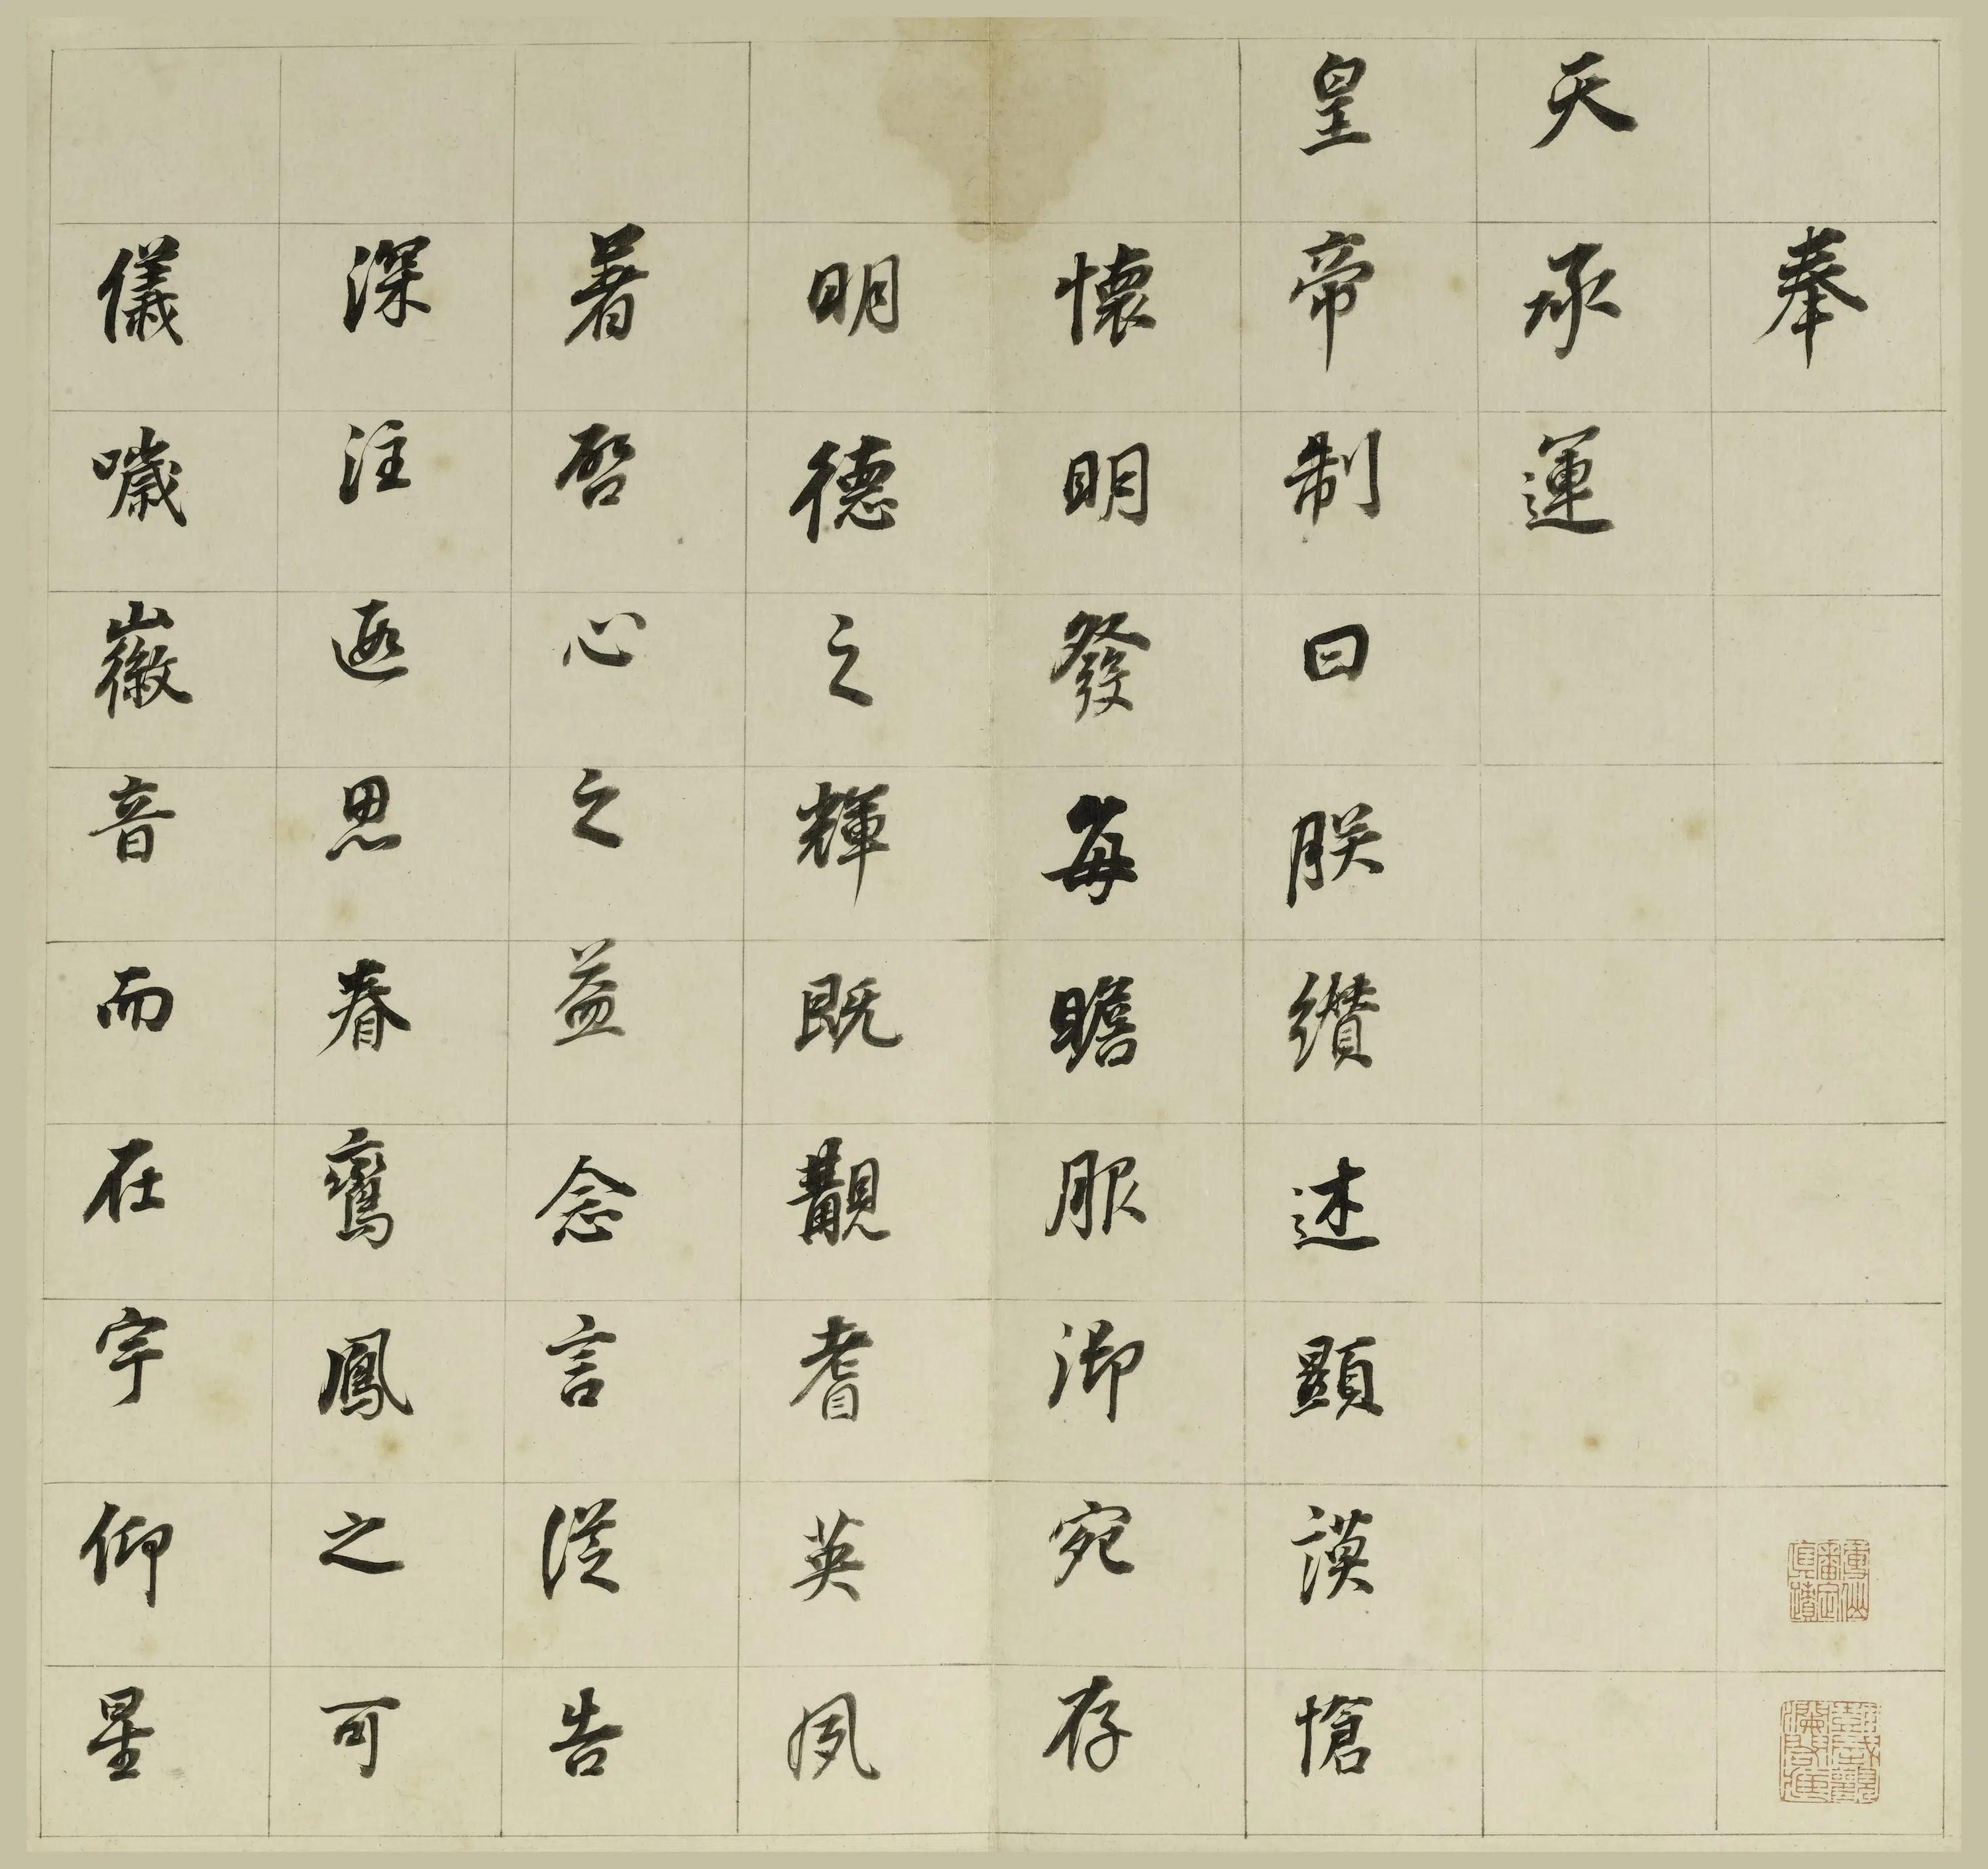 奉
天承運
皇帝制曰朕纘述顯謨愴
懷明發每瞻服御宛存
明德之輝既覯耆英夙
著啓心之益念言從告
深注遐思眷鸞鳳之可
儀噦徽音而在宇仰星